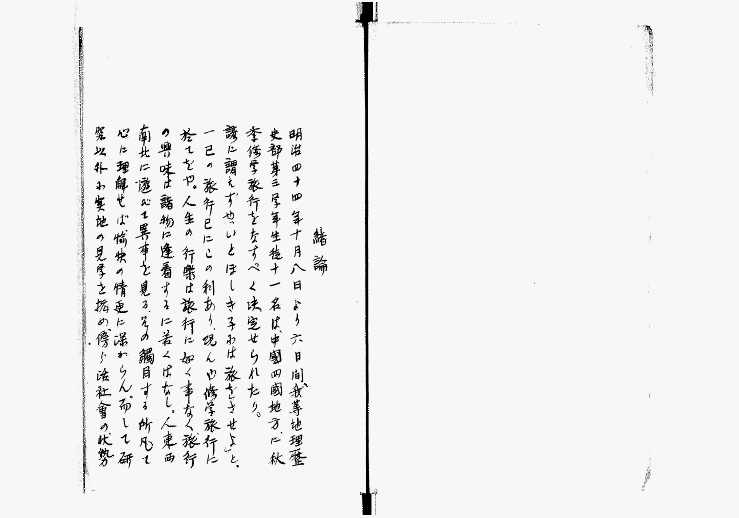 緒論
明治四十四年十月八日より六日間、我等地理歴
史部第三学年生徒十一名は、中國四國地方に秋
季修学旅行をなすべく決定せられたり。
諺に謂えずや、「いとほしき子わは旅をさせよ」と、
一已の旅行已にこの利あり、況んや修学旅行に
於てをや。人生の行楽は旅行に如く事なく旅行
の興味は諸物に逢着するに若くはなし。人東西
南北に遊びて異事を見る、その觸目する所凡て
心に理解せば愉快の情更に深からん、而して研
究以外わ実地の見学を拡め、傍ら活社會の状勢